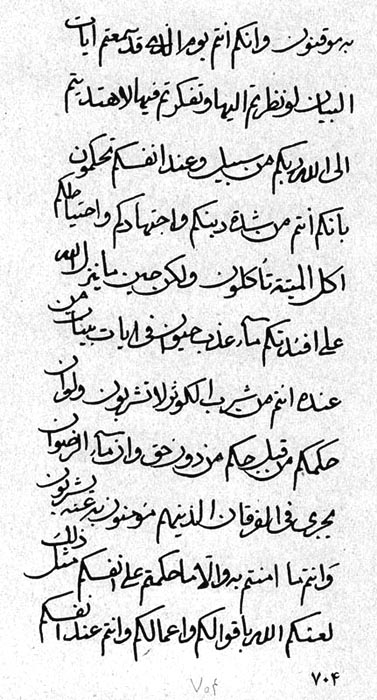 به موقنون وانكم انتم يوم الله قد سمعتم ايات
البيان لو نظرتم اليها وتفكرتم فيها لاهتديتم
الى الله ربكم من سبيل وعند انفسكم تحكمون
بانكم انتم من شدة دينكم واجتهادكم واحتياطكم
اكل الميتة تأكلون ولكن حين ما ينزل الله
على افئدتكم ماء عذب حيوان في ايات بينات من
عنده انتم من شرب الكوثر لا تشربون ولو ان
حكمكم من قبل حكم من دون حق وان ماء الرضوان
يجري في الفرقان الذينهم مؤمنون به عنه يشربون
وانتم ما امنتم به والا ما حكمتم على انفسكم مثل ذلك
لعنكم الله باقوالكم واعمالكم وانتم عند انفسكم
٧٠۴
٧٠۴